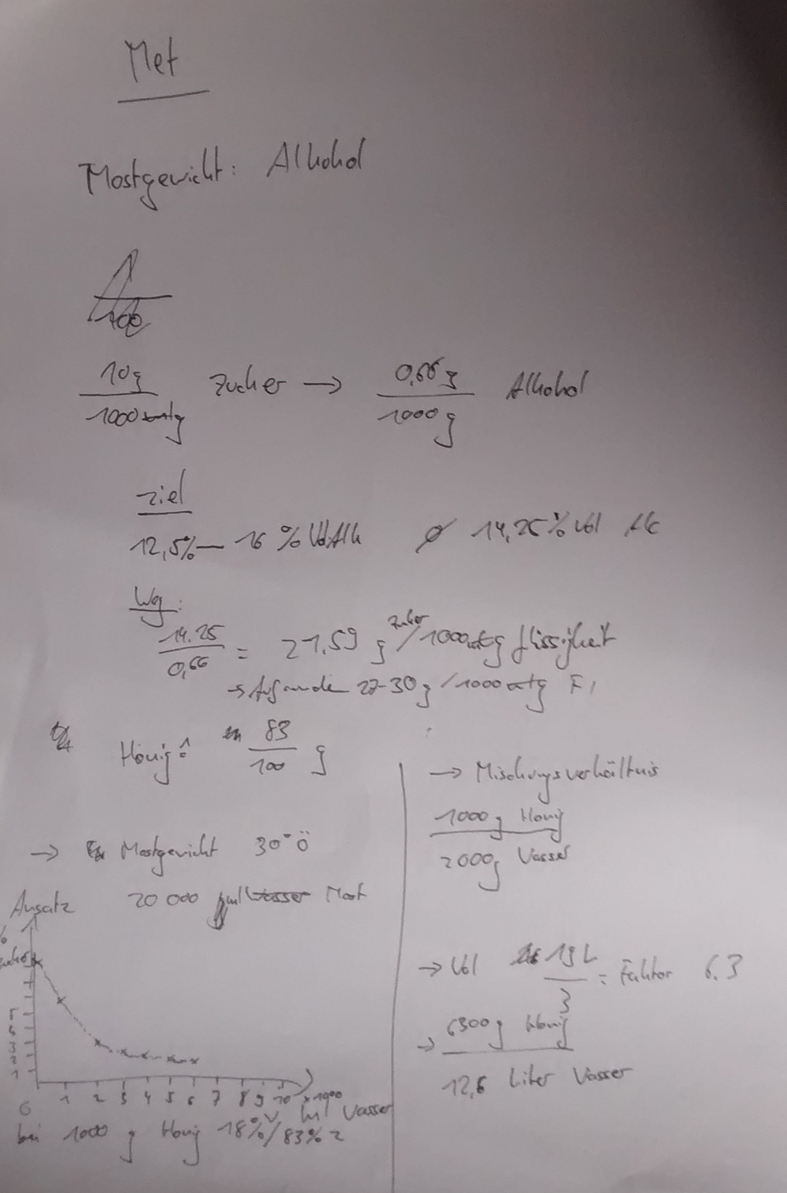 Met
Mostgewicht: Alkohol
10g / 1000 g Zucker → 0,66 g / 1000 g Alkohol
Ziel
12,5% – 16 % Vol Alk ∅ 14,25% Vol Alc
Weg:
14.25 / 0,66 = 21,59 g Zucker / 1000 g flüssigkeit
→ 27-30 g / 1000 g
Honig ≙ 83 / 100 g
→ Mostgewicht 30° Ö
Ansatz 20 000 Most
% Zucker
5
4
3
2
1
0 1 2 3 4 5 6 7 8 9 10 × 1000
ml Wasser
bei 1000 g Honig 18% / 83%
→ Mischungsverhältnis
1000 g Honig
2000 g Wasser
→ Vol 19 L / 3 = Faktor 6.3
→ 6300 g Honig
12,6 Liter Wasser